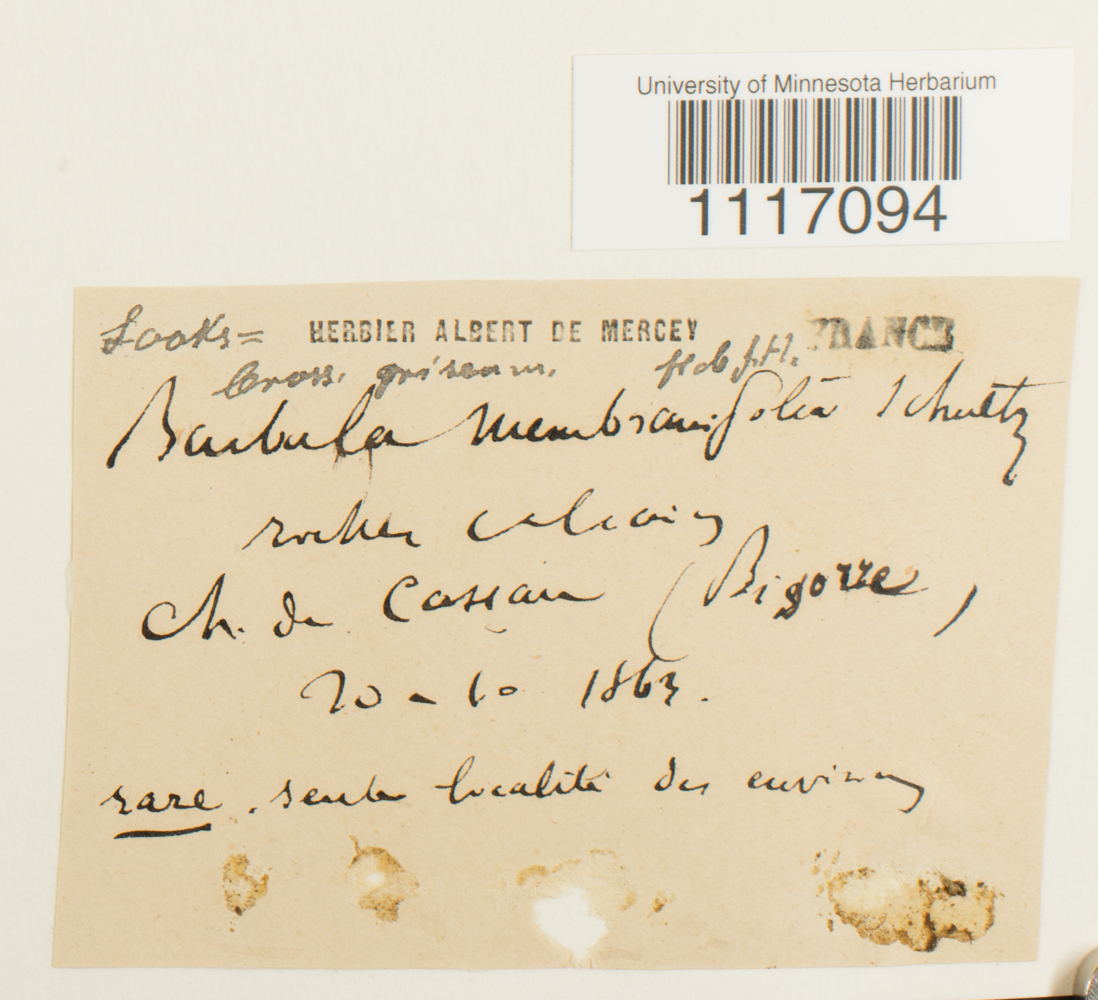 University of Minnesota Herbarium
1117094
Looks =
HERBIER ALBERT DE MERCEY
FRANCE
Cross. griseum.
Barbula membranifolia Schultz
rocher calcaires
Ch. de Cassan (Bigorre)
20 - 10 1863.
rare. seule localité des environs